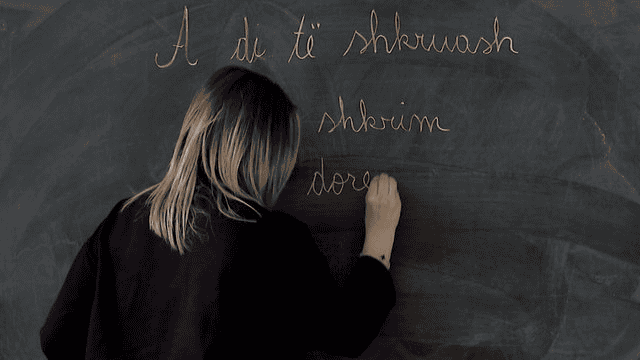 A di të shkruash
shkrim
dore